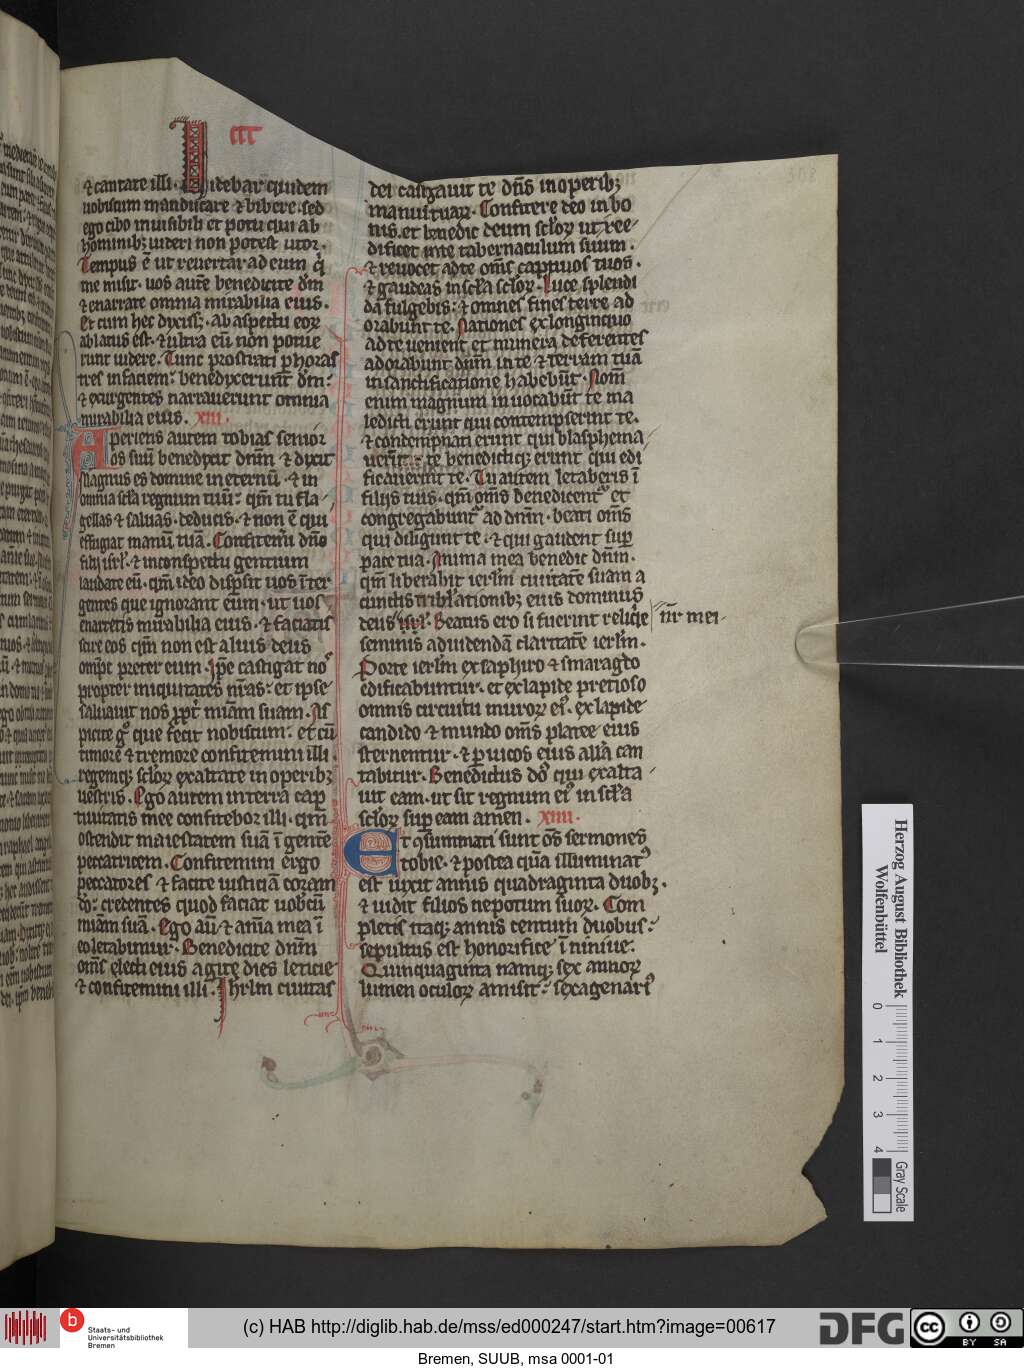 III
et cantate illi. Uidebar quidem
uobiscum manducare et bibere. sed
ego cibo inuisibili et potu qui ab
hominibꝫ uideri non potest utor.
Tempus ē ut reuertar ad eum q̇
me misit. uos autē benedicite dm̄
et enarrate omnia mirabilia eius.
Et cum hec dixiss;. ab aspectu eoꝝ
ablatus est. et ultra eū non potue
runt uidere. Tunc prostrati p horas
tres in faciem. benedyxerunt dm̄.
et exurgentes narrauerunt omnia
mirabilia eius. xiii.
Aperiens autem tobias senior
os suū benedyxit dnm̄ et dyxit
Magnus es domine in eternū. et in
omnia scl̄a regnum tuū. qm̄ tu fla
gellas et saluas. deducis. et non ē qui
effugiat manū tuā. Confitemī dn̄o
filij isrl̄. et in conspectu gentium
laudate eū. qm̄ ideo dispsit uos īter
gentes que ignorant eum. ut uos
enarretis mirabilia eius. et faciatis
scire eos qm̄ non est alius deus
omp̄t preter eum. Ipse castigat nos
propter iniquitates nr̄as. et ipse
saluauit nos ꝓpt̄ miām suam. As
picite gͦ que fecit nobiscum. et cū
timore et tremore confitemini illi.
regemqꝫ scl̄oꝝ exaltate in operibꝫ
uestris. Ego autem in terra cap
tiuitatis mee confitebor illi. qm̄
ostendit maiestatem suā ī gentē
peccatricem. Confitemini ergo
peccatores et facite iusticiā coram
do. credentes quod faciat uobcū
miām suā. Ego aū et aīa mea ī
eo letabimur. Benedicite dnm̄
om̄s electi eius agite dies leticie
et confitemini illi. Ihrlm ciuitas
dei castigauit te dn̄s in operibꝫ
manuū tuaꝝ. Confitere deo in bo
nis. et benedic deum scl̄oꝝ ut ree
dificet in te tabernaculum suum.
et reuocet ad te om̄s captiuos tuos.
et gaudeas in scl̄a scl̄oꝝ. Luce splendi
dā fulgebis. et omnes fines terre ad
orabunt te. Nationes ex longinquo
ad te uenient et munera deferentes
adorabunt dnm̄ in te et terram tuā
in sanctificatione habebūt. Nom̄
enim magnum inuocabūt te ma
ledicti erunt qui contempserint te.
et condempnati erunt qui blasphema
uerīt. te benedictiqꝫ erunt qui edi
ficauerint te. Tu autem letaberis ī
filijs tuis. qm̄ om̄s benedicentᷣ et
congregabuntᷣ ad dnm̄. beati om̄s
qui diligunt te. et qui gaudent sup
pace tua. Anima mea benedic dnm̄.
qm̄ liberabit ierlm̄ ciuitatē suam a
cunctis tribl̄ationibꝫ eius dominus
deus isrl̄. Beatus ero si fuerint reliqͥe
nr̄ mei.
seminis ad uidendā claritatē ierlm̄.
Porte ierlm̄ ex saphiro et smaragdo
edificabuntur. et ex lapide pretioso
omnis circuitu muroꝝ eiꝰ. ex lapide
candido et mundo om̄s platee eius
sternentur. et p uicos eius allā can
tabitur. Benedictus dō qui exalta
uit eam. ut sit regnum eiꝰ in scl̄a
scl̄oꝝ sup eam amen. xiiii.
Et ꝯsummati sunt os̄ sermones
tobie. et postea qua illuminatꝰ
est uixit annis quadraginta duobꝫ.
et uidit filios nepotum suoꝝ. Com
pletis itaqꝫ annis centum duobus.
sepultus est honorifice ī niniue.
Quinquaginta namqꝫ sex annoꝝ
lumen oculoꝝ amisit. sexagenariꝰ
308
Herzog August Bibliothek
Wolfenbüttel
0 1 2 3 4
Gray Scale
b
Staats- und
Universitätsbibliothek
Bremen
(c) HAB http://diglib.hab.de/mss/ed000247/start.htm?image=00617
DFG
cc BY SA
Bremen, SUUB, msa 0001-01